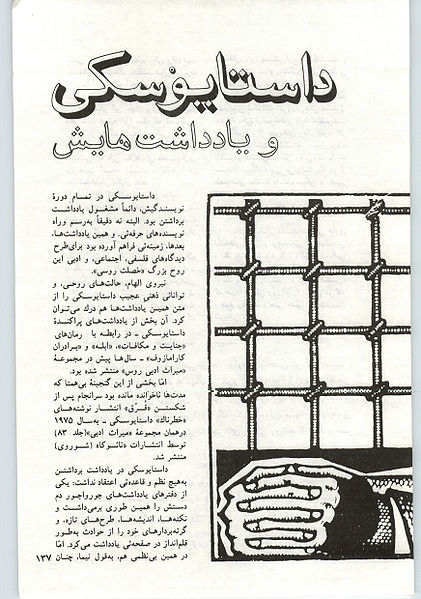 داستایوسکی
و یادداشت‌هایش
داستایوسکی در تمام دورهٔ
نویسندگیش، دائماً مشغول یادداشت
برداشتن بود. البته نه دقیقاً به‌رسم و راه
نویسنده‌های حرفه‌ئی. و همین یادداشت‌ها،
بعدها، زمینه‌ئی فراهم آورده بود برای طرح
دیدگاه‌های فلسفی، اجتماعی، و ادبی این
روح بزرگ «خصلت روسی».
نیروی الهام، حالت‌های روحی، و
توانائی ذهنی عجیب داستایوسکی را از
متن همین یادداشت‌ها هم درک می‌توان
کرد. آن بخش از یادداشت‌های پراکندهٔ
داستایوسکی ـ در رابطه با رمان‌های
«جنایت و مکافات»، «ابله» و «برادران
کارامازوف» ـ سال‌ها پیش در مجموعهٔ
«میراث ادبی روس» منتشر شده بود.
امّا بخشی از این گنجینهٔ بی‌همتا که
مدت‌ها ناخوانده مانده بود سرانجام پس از
شکستن «قُرُقِ» انتشار نوشته‌های
«خطرناك» داستایوسکی ـ به‌سال ۱۹۷۵
درهمان مجموعهٔ «میراث ادبی»(جلد ۸۳)
توسط انتشارات «نائوکا» (شوروی)
منتشر شد.
داستایوسکی در یادداشت برداشتن
به‌هیچ نظم و قاعده‌ئی اعتقاد نداشت: یکی
از دفترهای یادداشت‌های جورواجور دم
دستش را همین طوری برمی‌داشت و
نکته‌ها، اندیشه‌ها، طرح‌های تازه، و
گرته‌بردارهای خود را از حوادث به‌طور
قلم‌انداز در صفحه‌ئی یادداشت می‌کرد. امّا
در همین بی‌نظمی هم، به‌قول نیما، چنان
۱۳۷